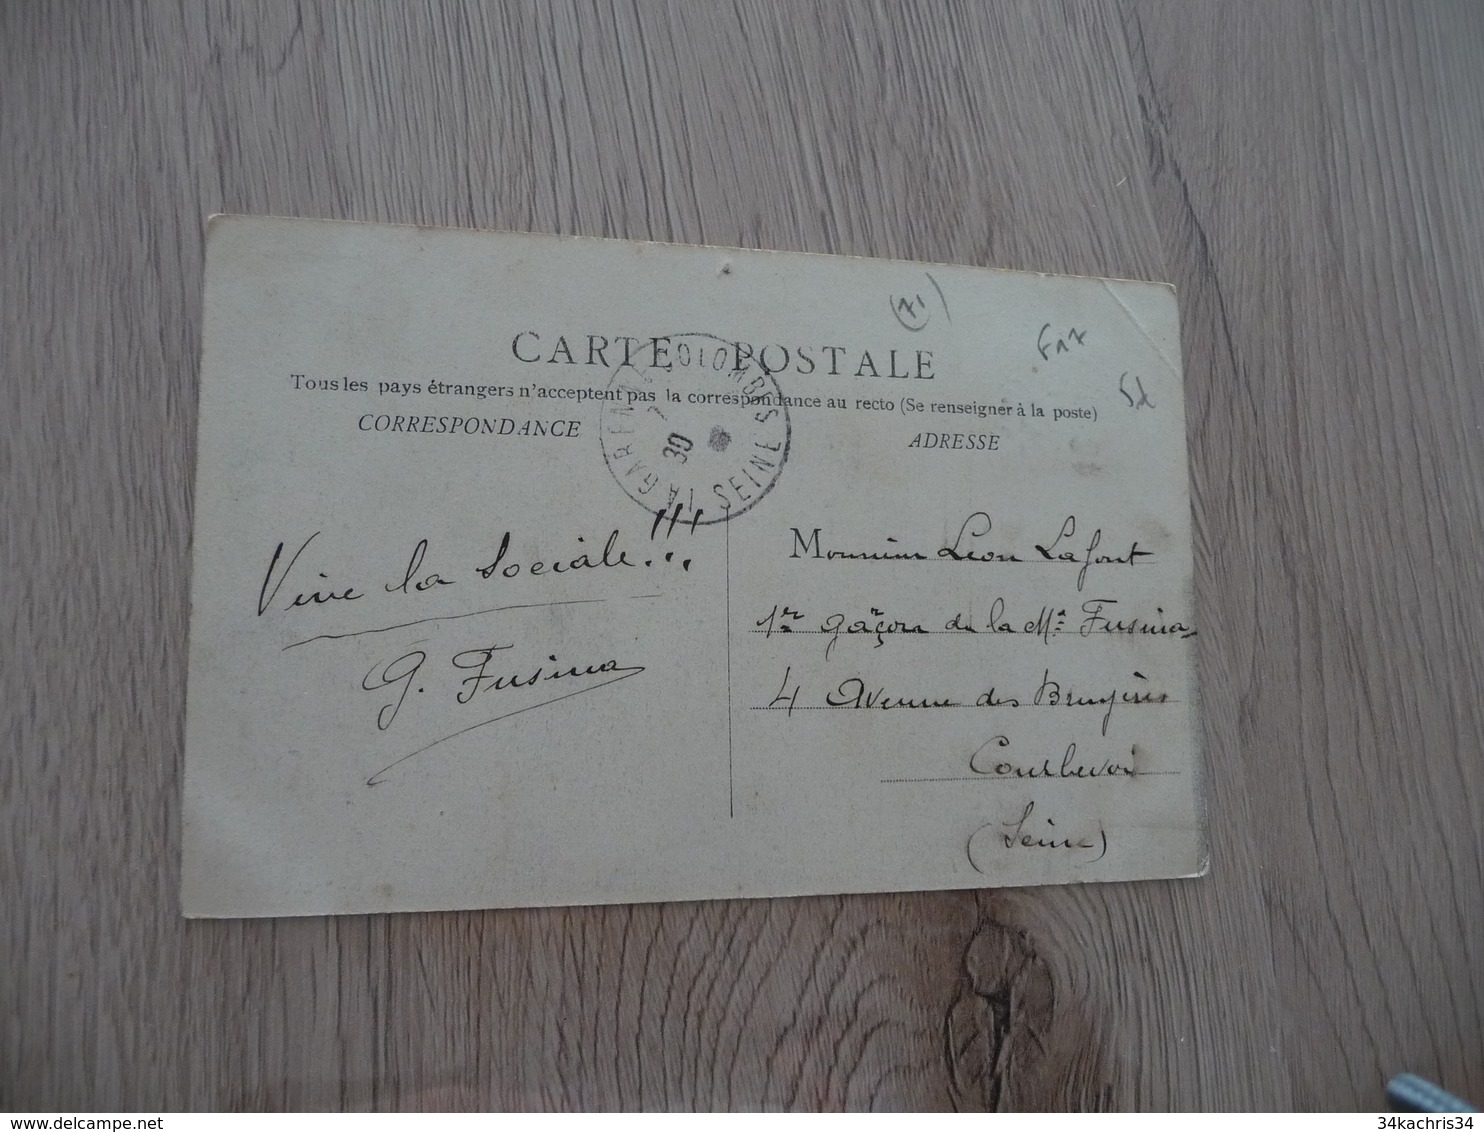 (71)
CARTE POSTALE
Tous les pays étrangers n'acceptent pas la correspondance au recto (Se renseigner à la poste)
CORRESPONDANCE
ADRESSE
LA GARENNE COLOMBES
SEINE
30
Vive la Sociale!!!
G. Fusina
Monsieur Léon Lafont
1er gaçon de la Mon Fusina
4 Avenue des Bruyères
Courbevoie
(Seine)
34kachris34
34kachris34